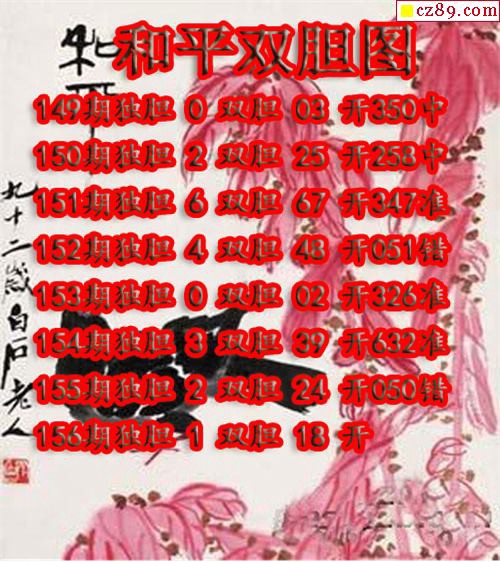 cz89.com
和平双胆图
149期独胆 0 双胆 03 开350中
150期独胆 2 双胆 25 开258中
151期独胆 6 双胆 67 开347准
152期独胆 4 双胆 48 开051错
153期独胆 0 双胆 02 开326准
154期独胆 3 双胆 39 开632准
155期独胆 2 双胆 24 开050错
156期独胆 1 双胆 18 开
和平
九十二岁白石老人